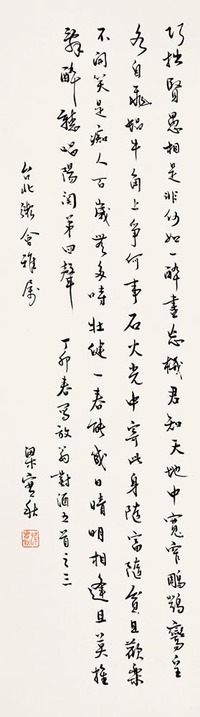 巧拙賢愚相是非何如一醉盡忘機君知天地中寬窄鵰鶚鸞皇
各自飛蝸牛角上爭何事石火光中寄此身隨富隨貧且歡樂
不開笑是痴人百歲無多時壯健一春能幾日晴明相逢且莫推
辭醉聽唱陽關第四聲
丁卯春寫放翁對酒五首之三
台北會雅屬
梁實秋